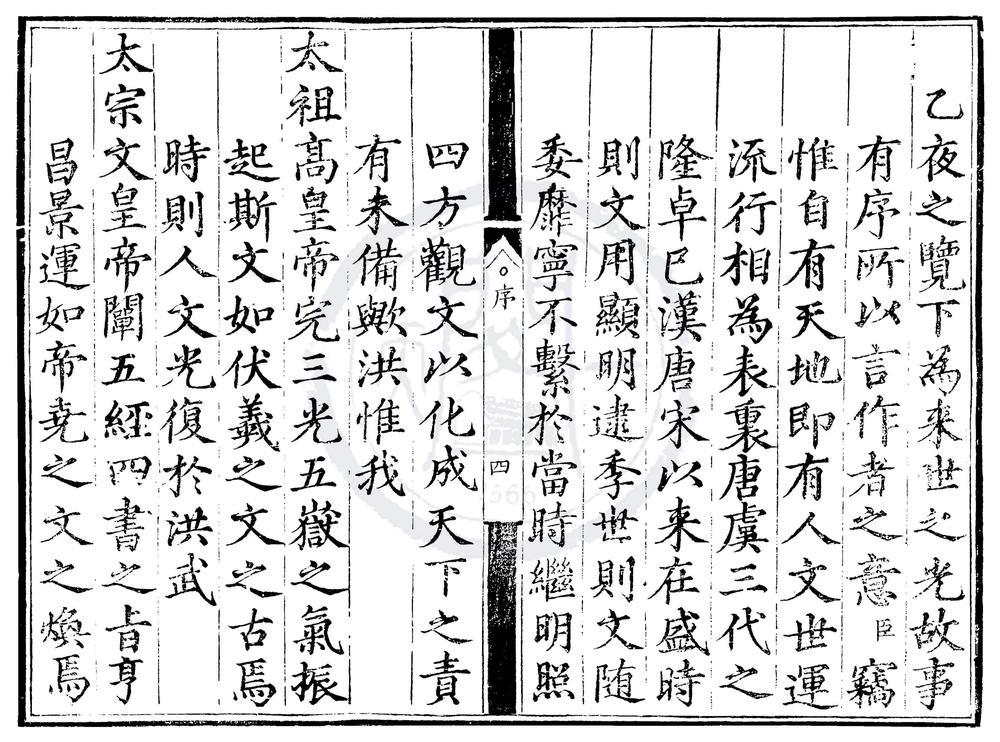 乙夜之覽下為來世之光故事
有序所以言作者之意臣竊
惟自有天地即有人文世運
流行相為表裏唐虞三代之
隆卓已漢唐宋以来在盛時
則文用顯明逮季世則文随
委靡寧不繫於當時繼明照
序
四
四方觀文以化成天下之責
有未備歟洪惟我
太祖高皇帝完三光五嶽之氣振
起斯文如伏羲之文之古焉
時則人文光復於洪武
太宗文皇帝闡五經四書之旨亨
昌景運如帝堯之文之煥焉